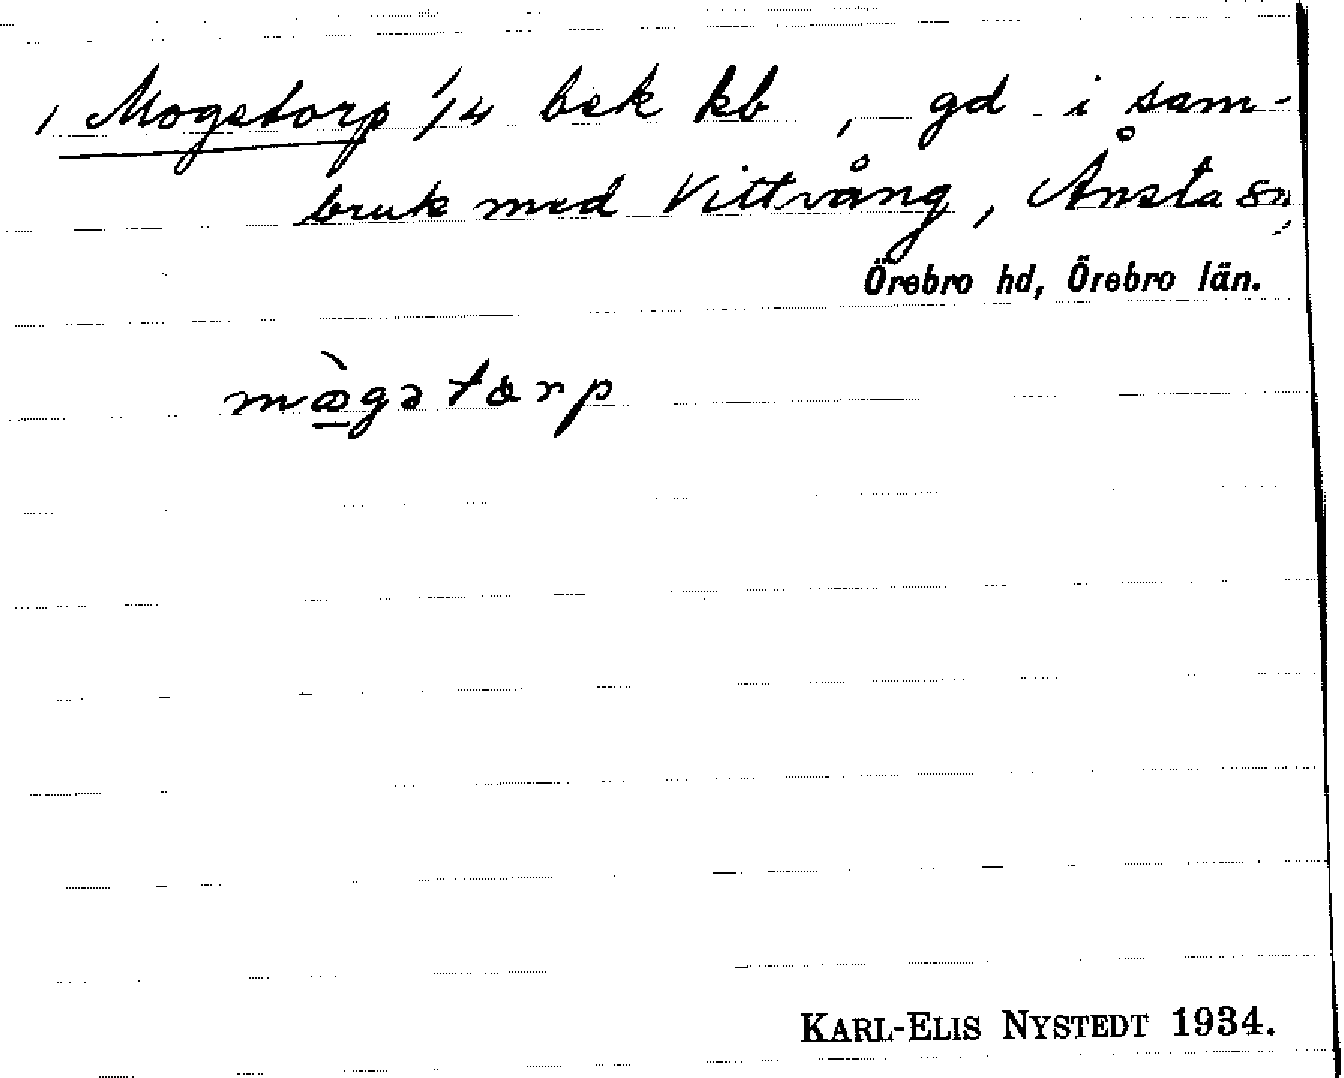 , Mogetorp 1/4 bsk kb , gd i sam-
bruk med Vittvång, Ånsta sn,
Örebro hd, Örebro län.
mògətorp
KARL-ELIS NYSTEDT 1934.